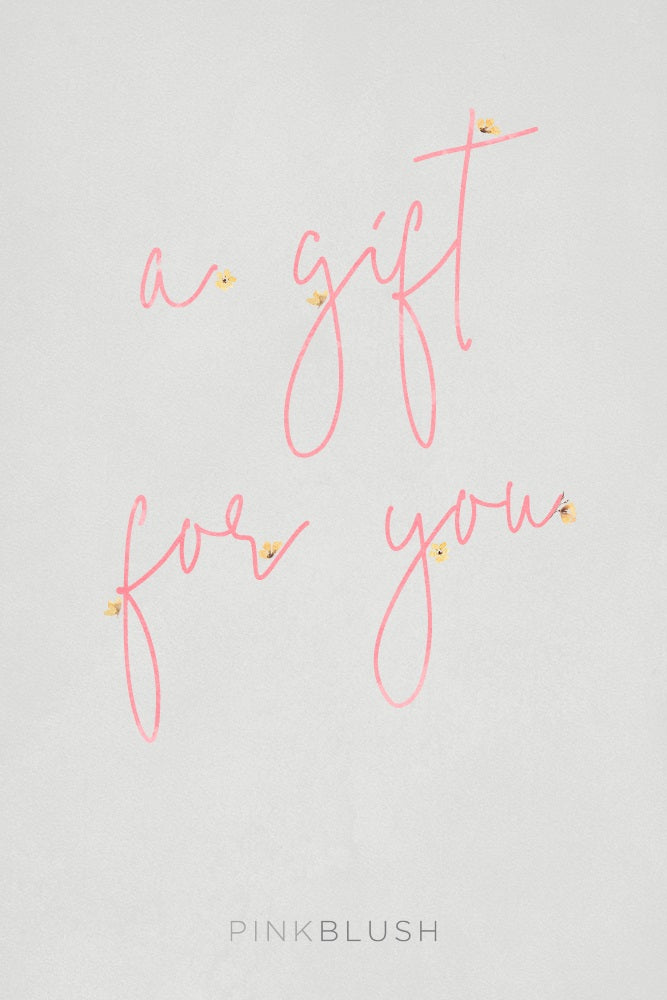 a gift
for you
PINKBLUSH